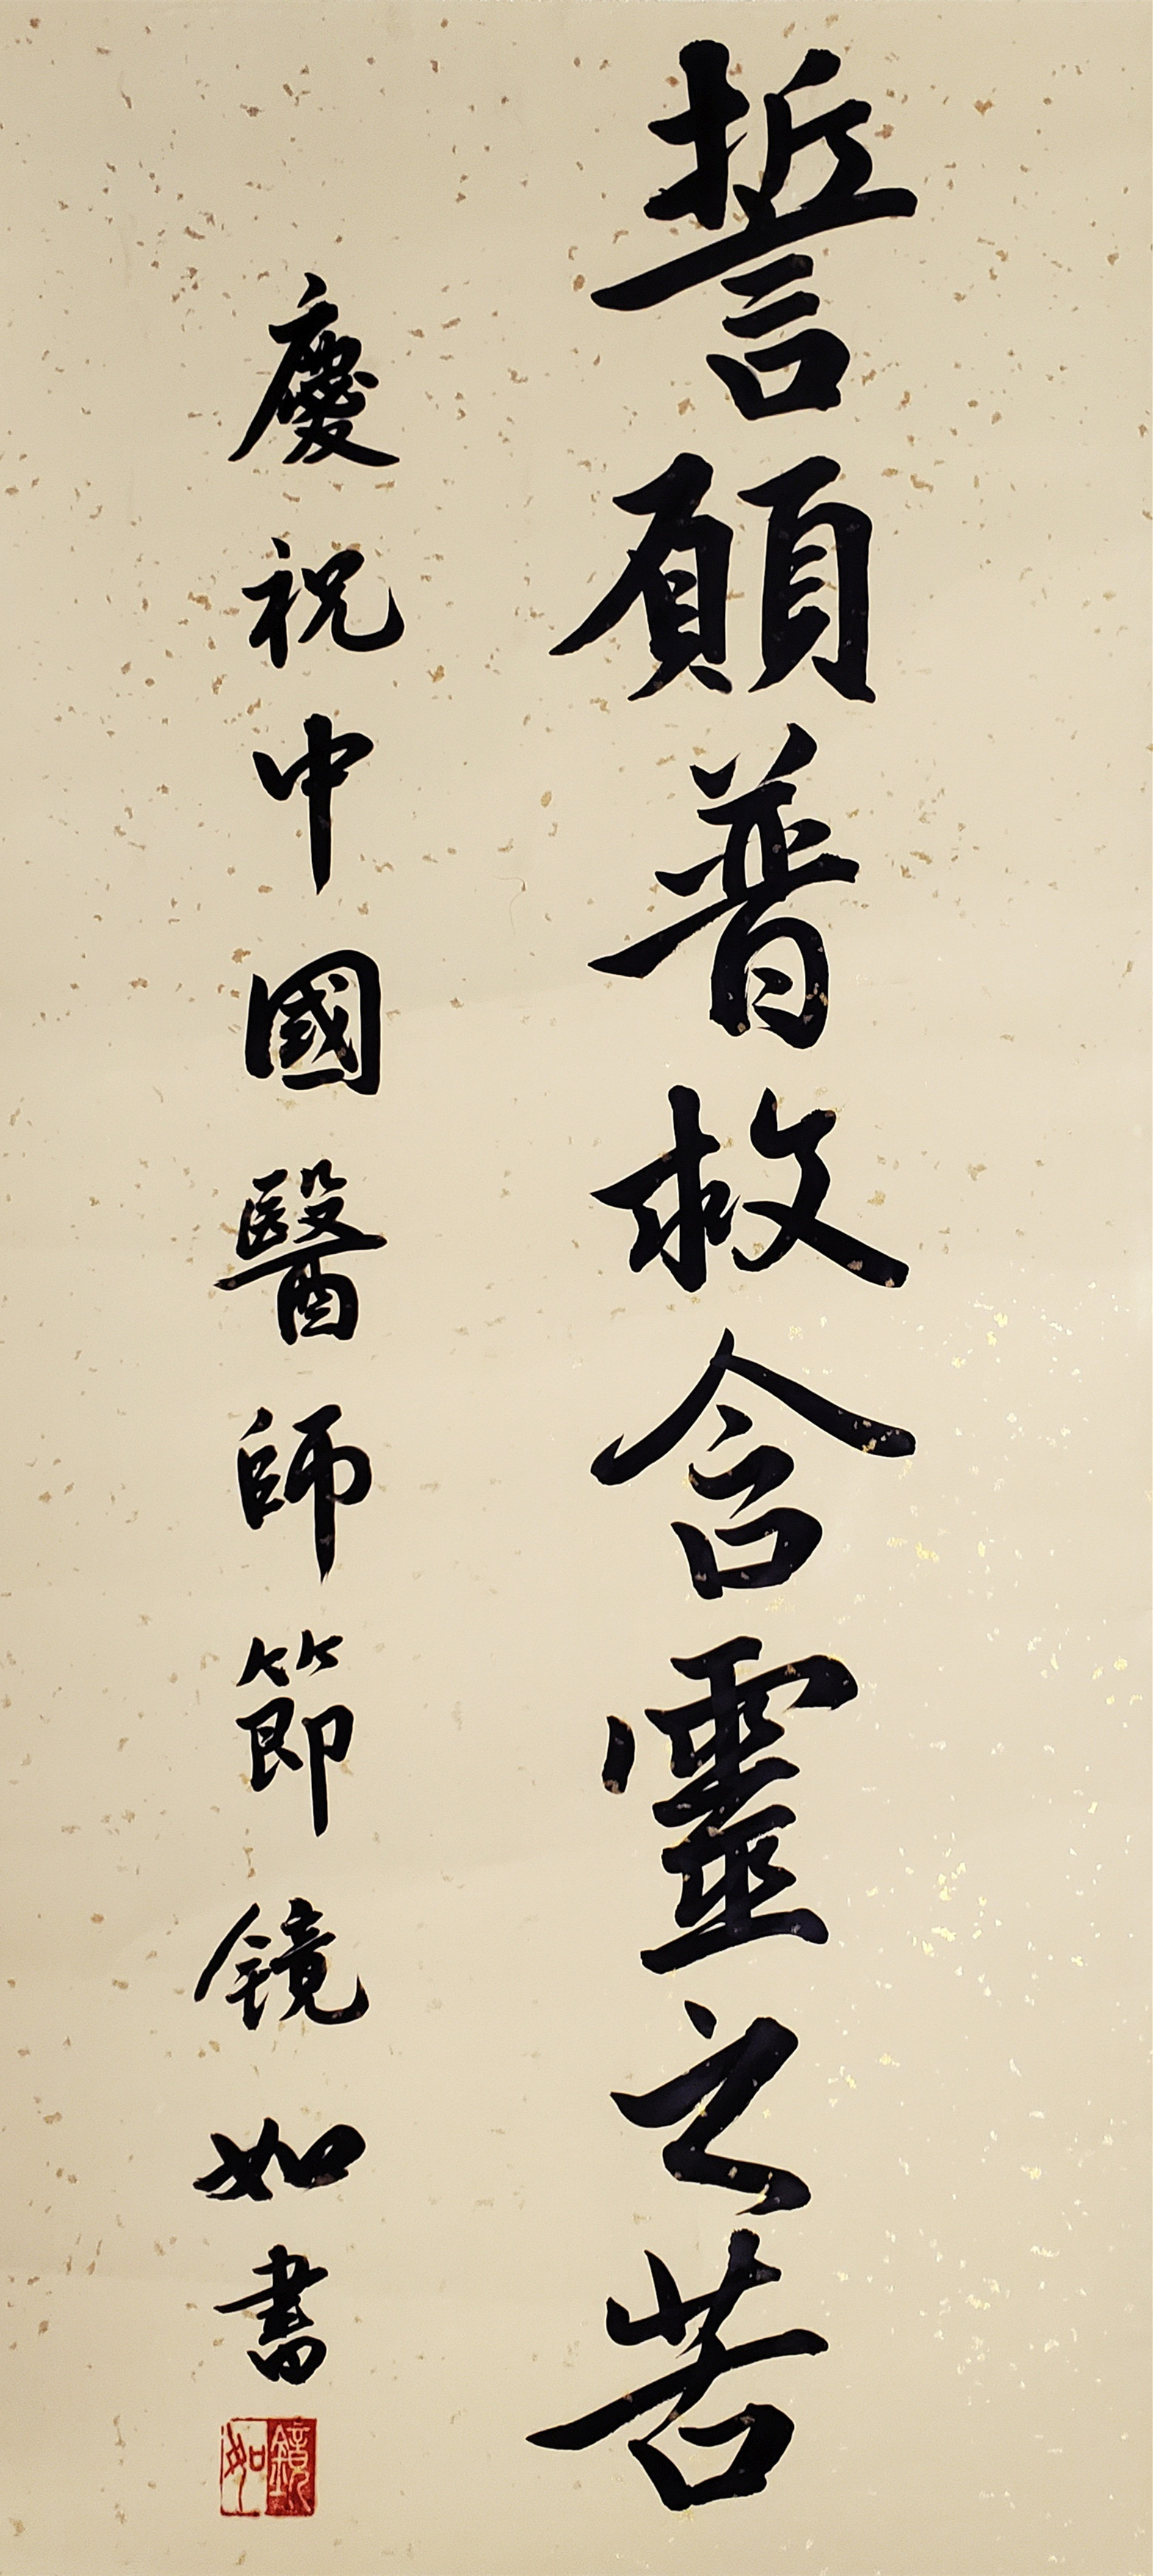 誓願普救含靈之苦
慶祝中國醫師節鏡如書
鏡如